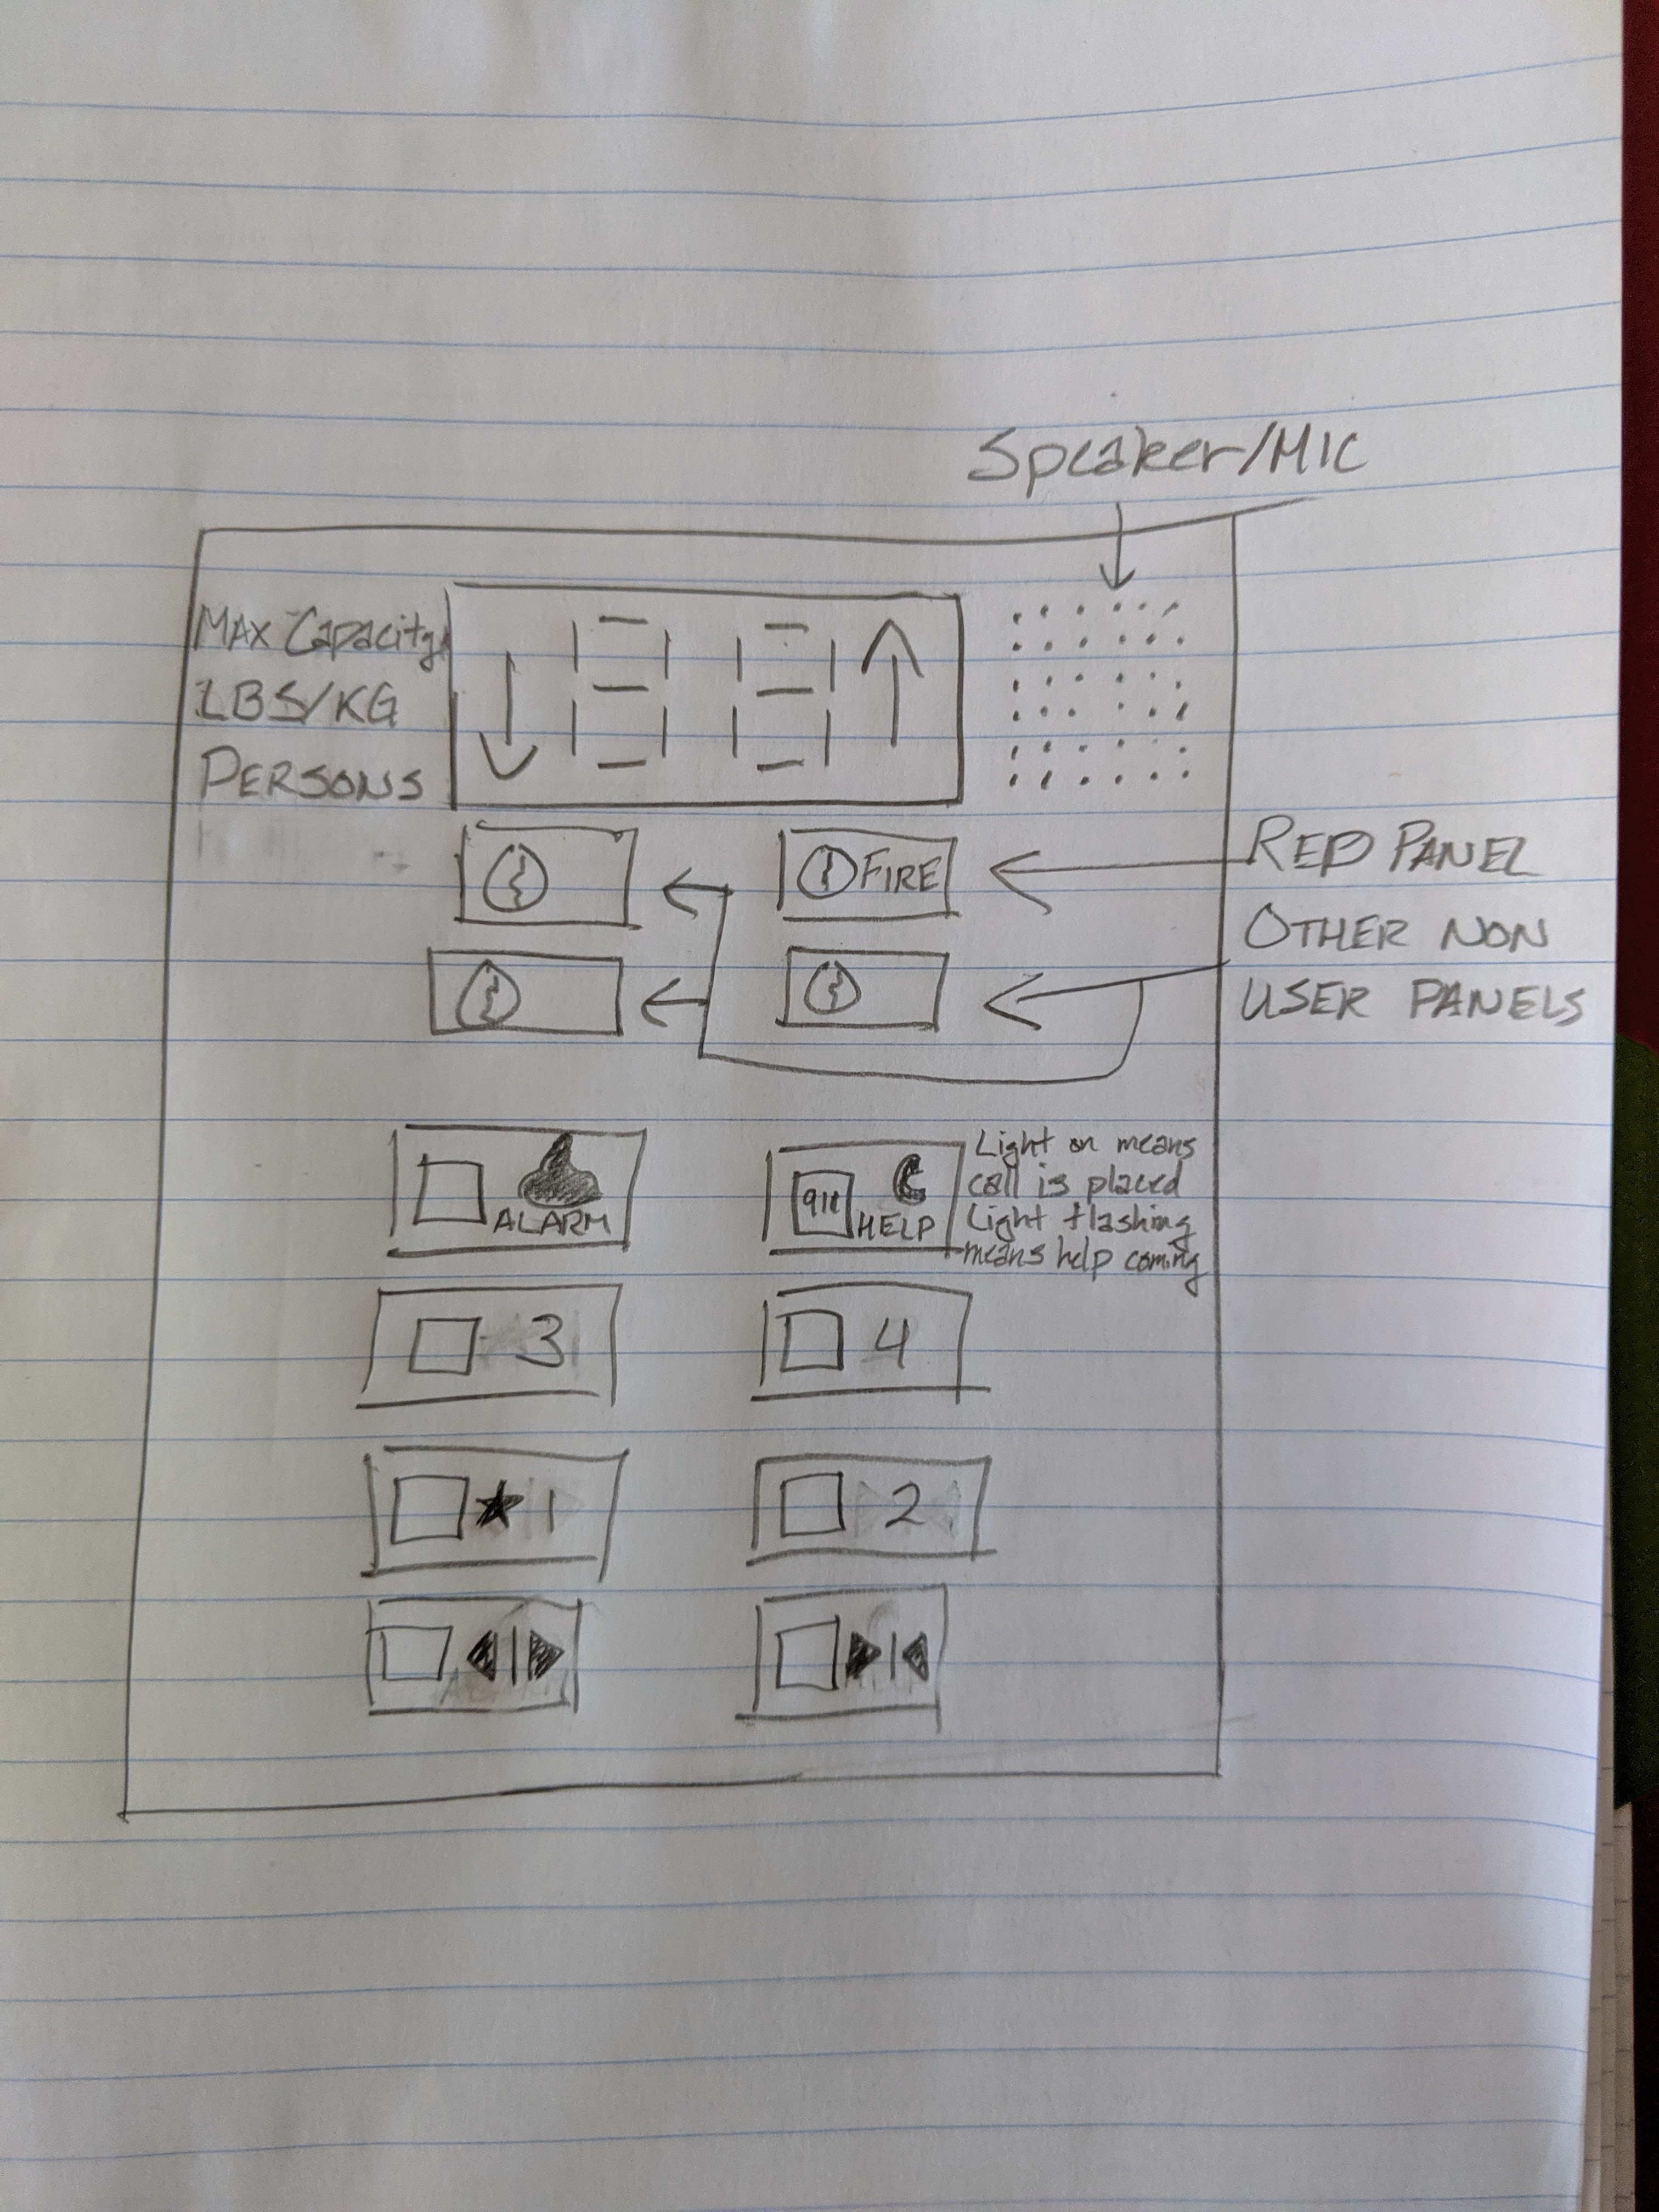 Speaker/MIC
MAX Capacity
LBS/KG
PERSONS
FIRE
RED PANEL
OTHER NON
USER PANELS
ALARM
911
HELP
Light on means
call is placed
Light flashing
means help coming
3
4
★ 1
2